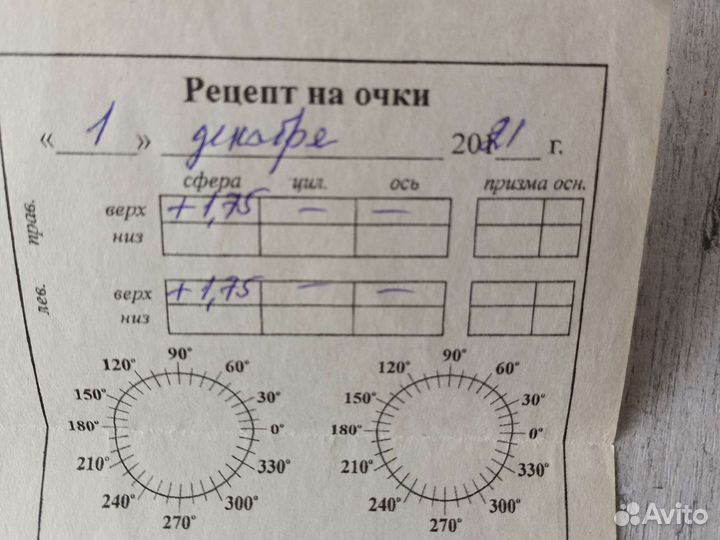 Рецепт на очки
« 1 » декабря 2021 г.
сфера цил. ось призма осн.
прав. верх +1,75 — —
низ
лев. верх +1,75 — —
низ
90° 90°
120° 60° 120° 60°
150° 30° 150° 30°
180° 0° 180° 0°
210° 330° 210° 330°
240° 300° 240° 300°
270° 270°
Avito